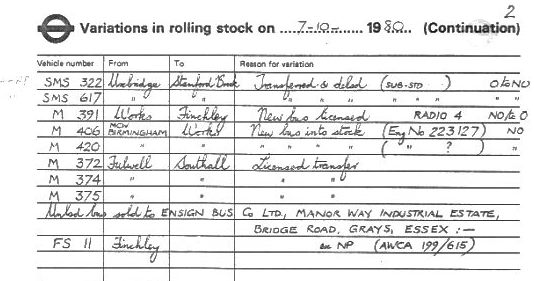 2
Variations in rolling stock on ....7-10-...... 1980.. (Continuation)
Vehicle number From To Reason for variation
SMS 322 Uxbridge Stamford Brook Transferred & delsd (SUB-STD ) O to NO
SMS 617 " " " " " " " "
M 391 Works Finchley New bus licensed RADIO 4 NO to O
M 406 MCW BIRMINGHAM Works New bus into stock (Eng No 223127) NO
M 420 " " " " " " ( " ? ) "
M 372 Fulwell Southall Licensed transfer
M 374 " " " "
M 375 " " " "
Unlsd bus sold to ENSIGN BUS Co LTD, MANOR WAY INDUSTRIAL ESTATE,
BRIDGE ROAD, GRAYS, ESSEX :—
FS 11 Finchley on NP (AWCA 199/615)